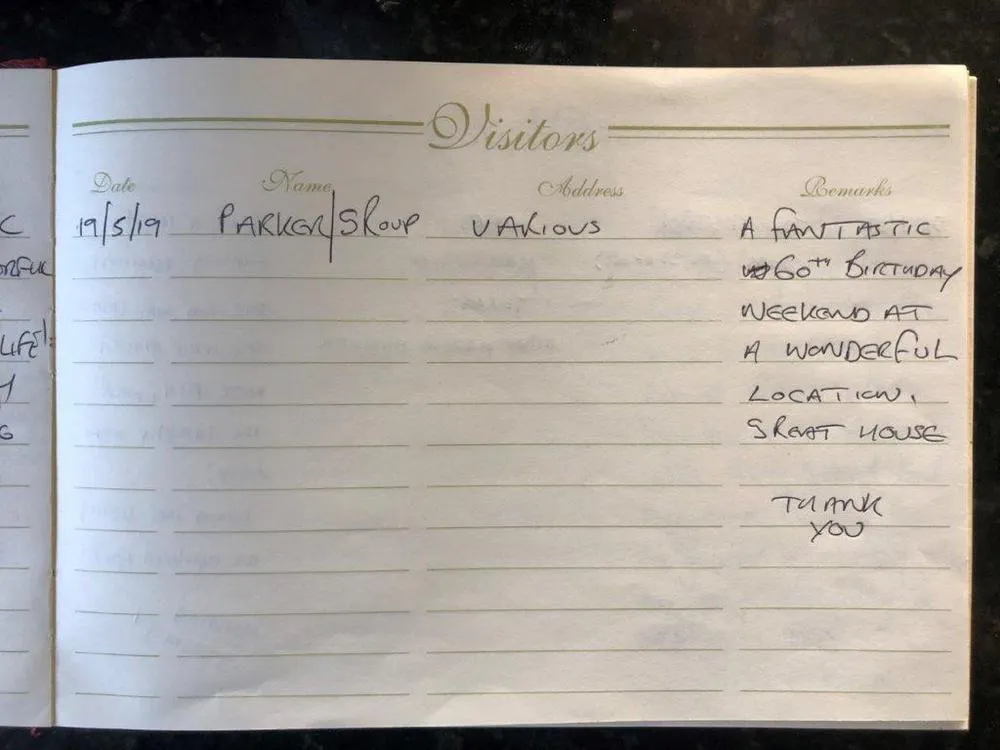 Visitors
Date Name Address Remarks
19/5/19 PARKER/GROUP VARIOUS A FANTASTIC
60TH BIRTHDAY
WEEKEND AT
A WONDERFUL
LOCATION.
GREAT HOUSE
THANK
YOU
LIFE!